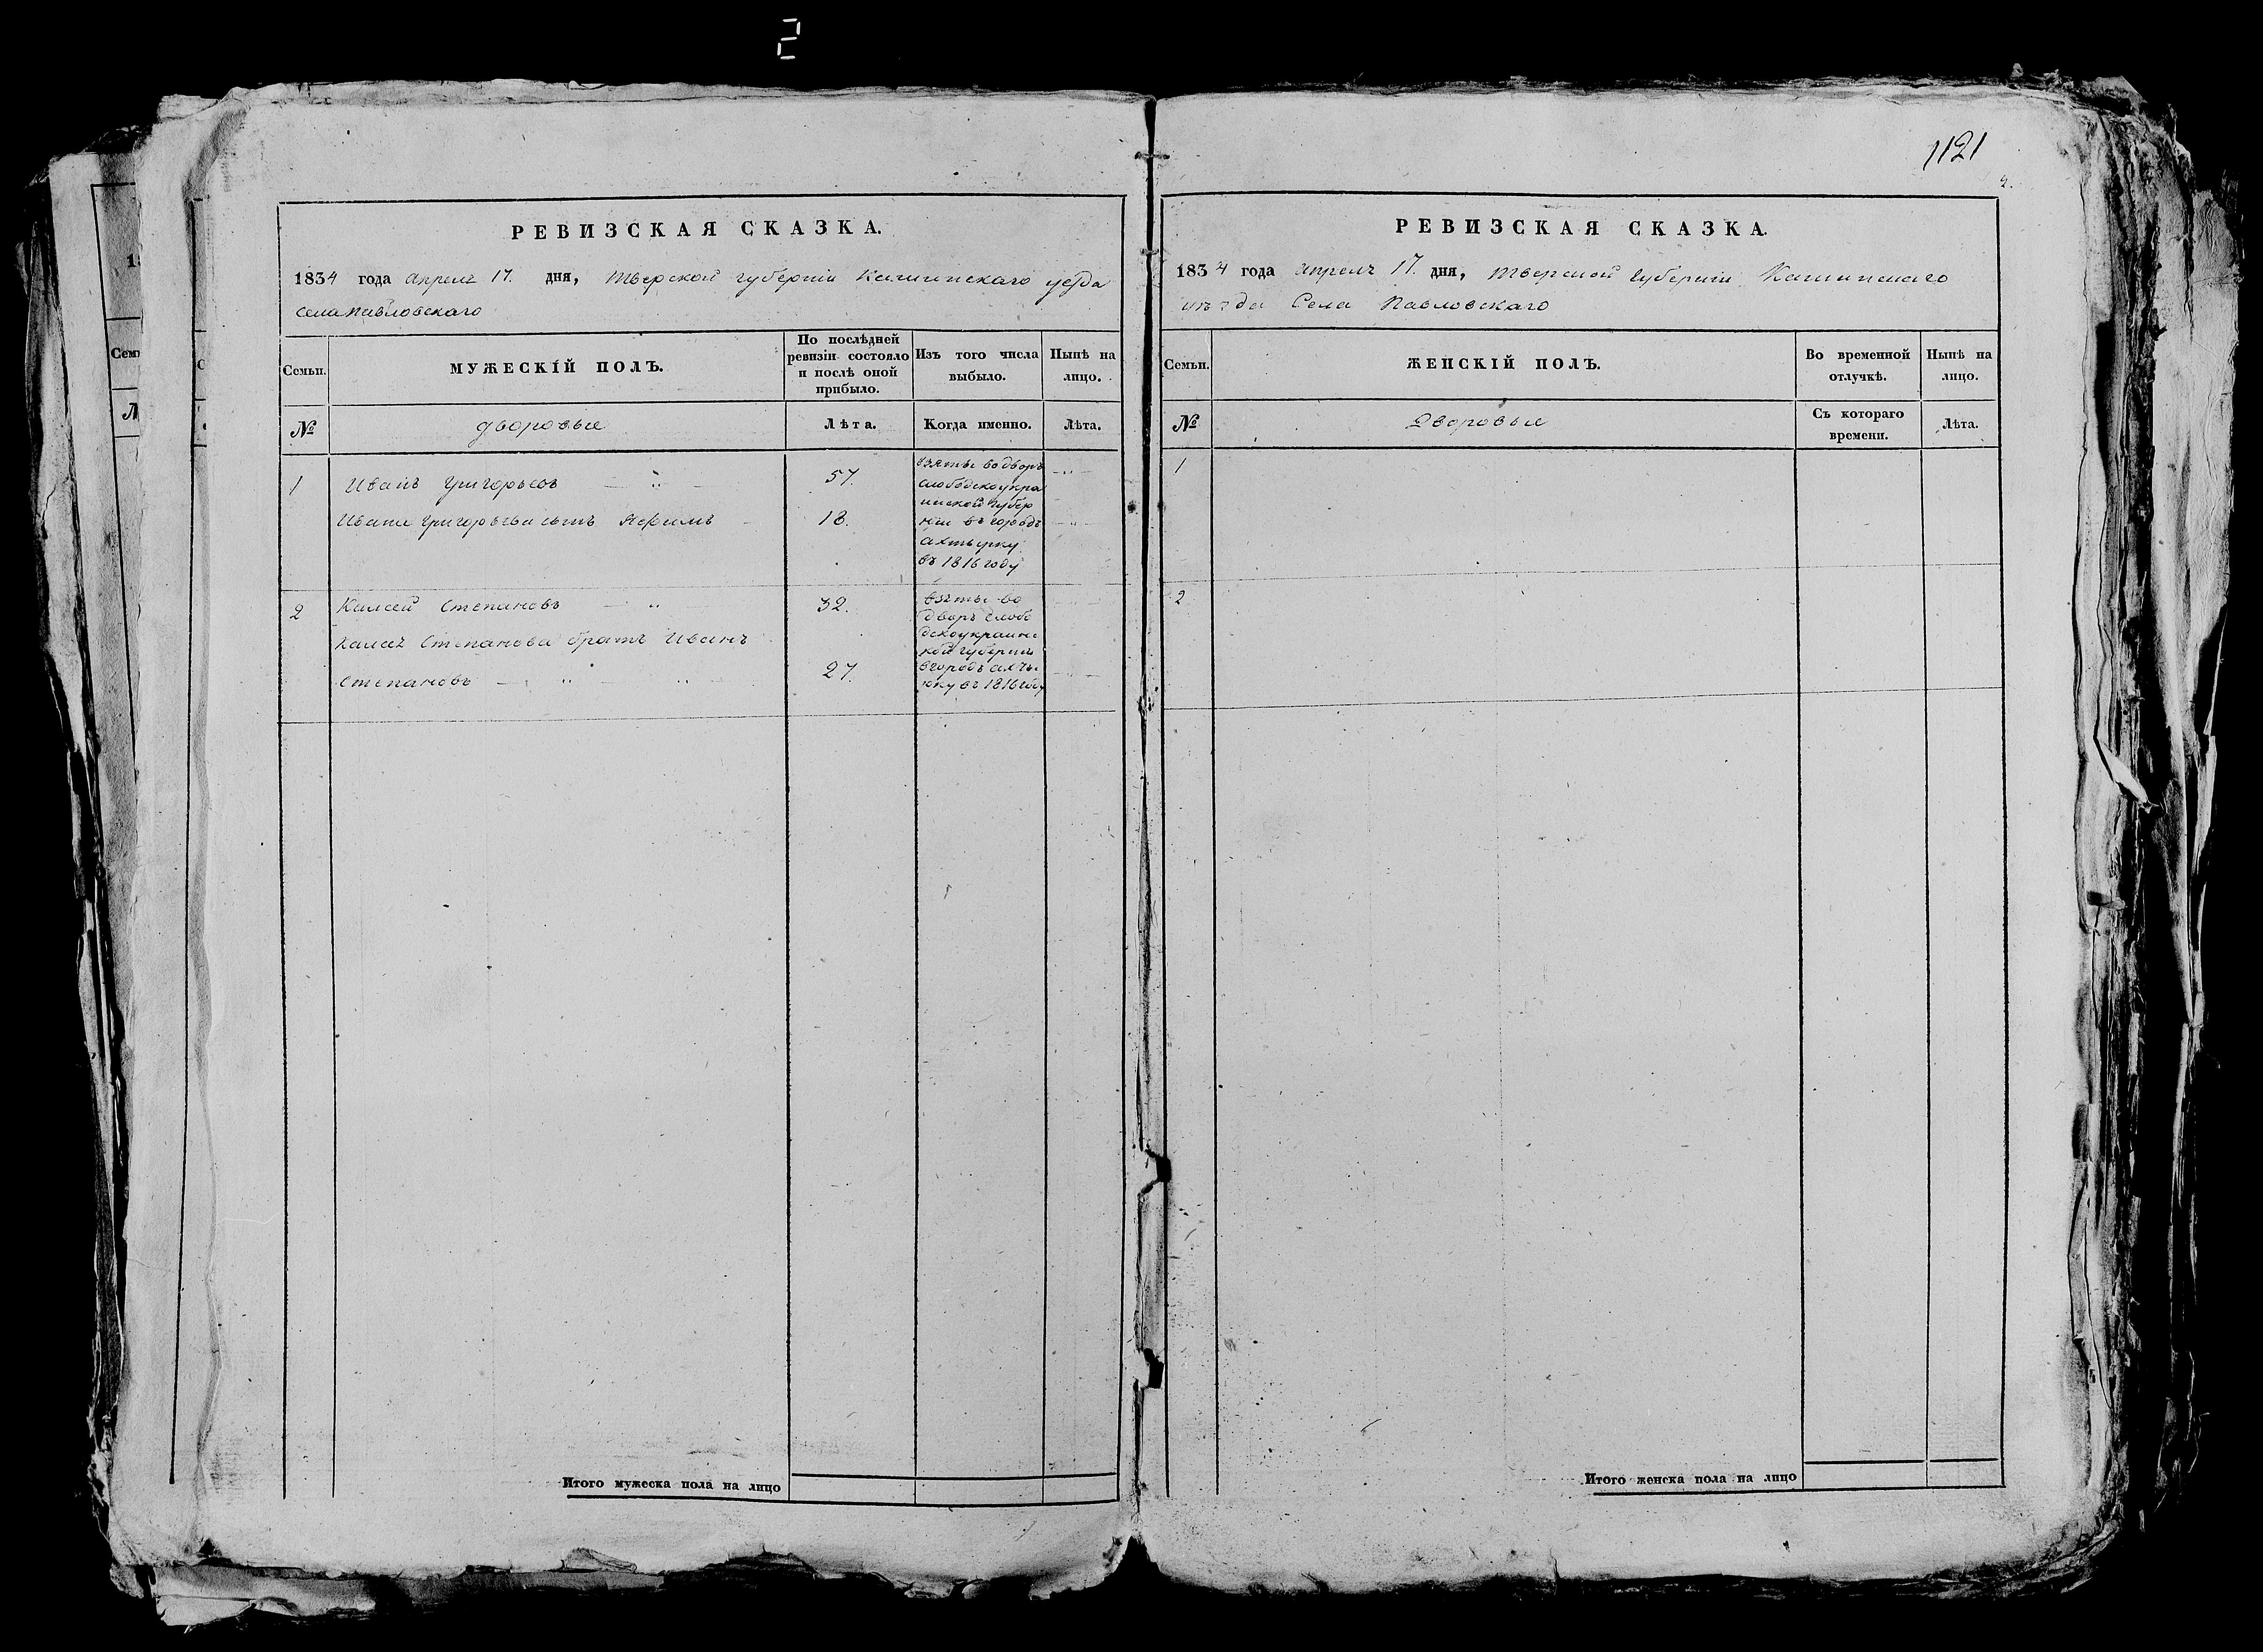 2
1121
РЕВИЗСКАЯ СКАЗКА.
1834 года апреля 17. дня, Тверской губернии Кашинскаго уезда
села Павловскаго
Семьи.
МУЖЕСКІЙ ПОЛЪ.
По послѣдней ревизіи состояло и послѣ оной прибыло.
Изъ того числа выбыло.
Нынѣ на лицо.
№
дворовые
Лѣта.
Когда именно.
Лѣта.
1
Иванъ Григорьевъ
57.
Ивана Григорьева сынъ
18.
взяты во дворъ
слободскоукра
инской губер
нии въ городъ
ахтырку
въ 1816 году
2
Степановъ
32.
Степанова братъ Иванъ
Степановъ
27.
взяты во
дворъ слобо
дскоукраинс
кой губернии
вгородъ
въ 1816 году
Итого мужеска пола на лицо
РЕВИЗСКАЯ СКАЗКА.
1834 года апреля 17. дня, Тверской губернии Кашинскаго
уѣзда Села Павловскаго
Семьи.
ЖЕНСКІЙ ПОЛЪ.
Во временной отлучкѣ.
Нынѣ на лицо.
№
Дворовые
Съ котораго времени.
Лѣта.
1
2
Итого женска пола на лицо